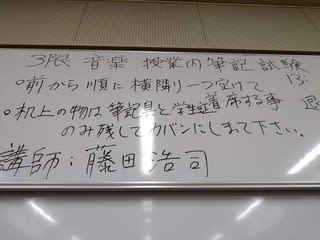 3限 音楽 授業内筆記試験
○前から順に横隣り一つ空けて
着席する事
○机上の物は筆記具と学生証
のみ残してカバンにしまって下さい。
講師:藤田浩司
13:
退